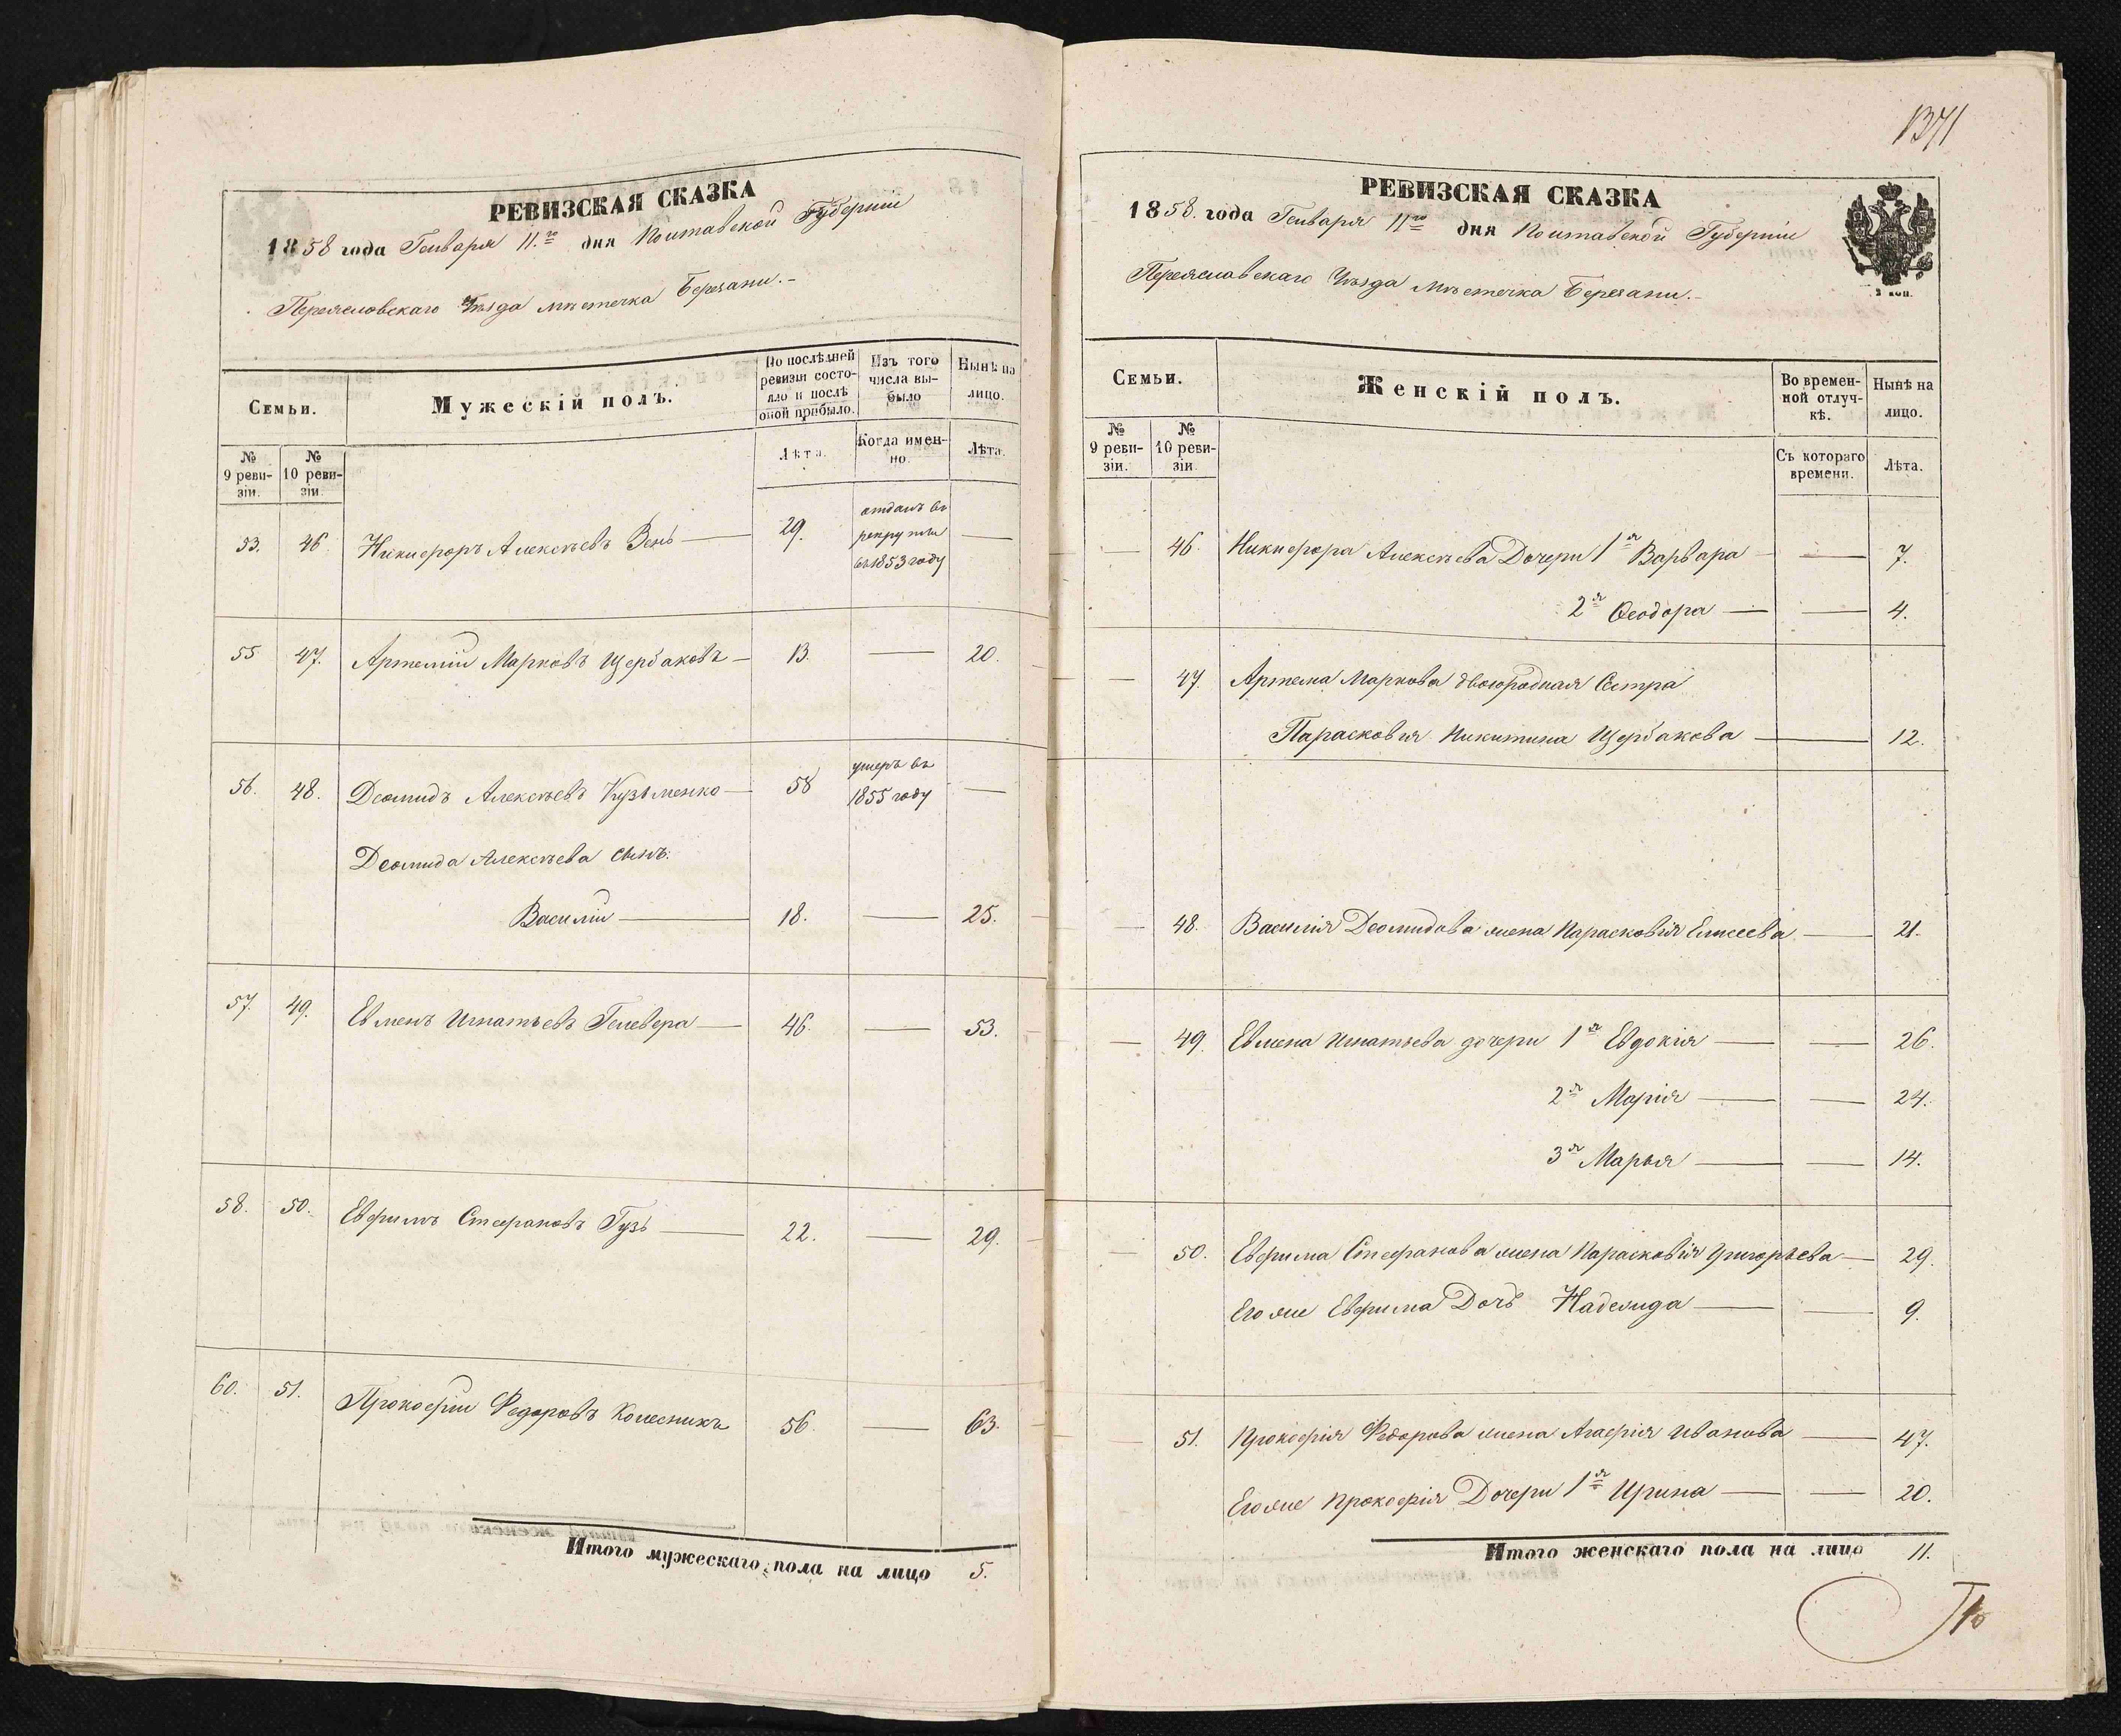 РЕВИЗСКАЯ СКАЗКА
1858 года Генваря 11.го дня Полтавской Губернии
Переясловскаго Уѣзда мѣстечка Березани.-
Семьи.
Мужескій полъ.
По послѣдней ревизіи состояло и послѣ оной прибыло.
Изъ того числа выбыло
Нынѣ на лицо.
№ 9 ревизіи.
№ 10 ревизіи.
Лѣта.
Когда именно.
Лѣта.
53. 46. Никифоръ Алексѣевъ Зень — 29. отданъ въ рекруты въ 1853 году —
55 47. Артемій Марковъ Щербаковъ — 13. — 20.
56. 48. Деомидъ Алексѣевъ Кузьменко — 58 умеръ въ 1855 году —
Деомида Алексѣева сынъ:
Василій — 18. — 25.
57. 49. Евменъ Игнатьевъ Гелевера — 46. — 53.
58. 50. Евфимъ Стефановъ Гузь — 22. — 29.
60. 51. Прокофій Федоровъ Колесникъ 56. — 63.
Итого мужескаго пола на лицо 5.
1371
РЕВИЗСКАЯ СКАЗКА
1858. года Генваря 11го дня Полтавской Губернии
Переяславскаго Уѣзда мѣстечка Березани.-
3 коп.
Семьи.
Женскій полъ.
Во временной отлучкѣ.
Нынѣ на лицо.
№ 9 ревизіи.
№ 10 ревизіи.
Съ котораго времени.
Лѣта.
— 46. Никифора Алексѣева Дочери 1я Варвара — — 7.
2я Ѳеодора — — 4.
— 47. Артема Маркова двоюродная Сестра
Парасковия Никитина Щербакова — 12.
— 48. Василія Деомидова жена Парасковія Елисеева — 21.
— 49. Евмена Игнатьева дочери 1я Евдокія — — 26.
2я Марія — — 24.
3я Марья — — 14.
— 50. Евфима Стефанова жена Парасковія Григорьева — 29.
Его же Евфима Дочь Надежда — — 9.
— 51. Прокофія Федорова жена Агафія Иванова — 47.
Его же Прокофія Дочери 1я Ирина — — 20.
Итого женскаго пола на лицо 11.